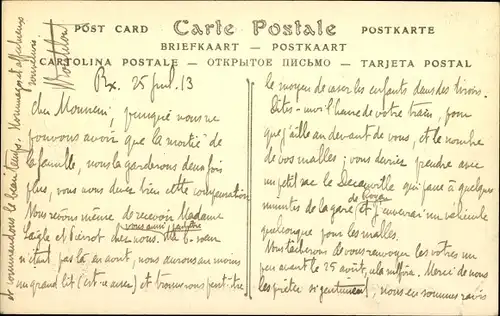 POST CARD Carte Postale POSTKARTE
BRIEFKAART — POSTKAART
CARTOLINA POSTALE — ОТКРЫТОЕ ПИСЬМО — TARJETA POSTAL
Bx. 25 juil. 13
Cher Monsieur, puisque nous ne
pouvons avoir que la moitié de
la famille, nous la garderons deux fois
plus, vous nous devez bien cette compensation
Nous rêvions même de recevoir Madame
vous aussi peut-être
Laigle et Pierrot chez nous.
n'étant pas là en août, nous aurons au moins
un grand lit (est-ce assez) et trouverons peut-être
le moyen de caser les enfants dans des tiroirs.
Dites-moi l'heure de votre train, pour
que j'aille au devant de vous, et le nombre
de vos malles ; vous devriez prendre avec
un petit sac le Decauville qui passe à quelques
minutes de la gare de Royan et j'enverrai un véhicule
quelconque pour les malles.
Nous tâcherons de vous renvoyer les vôtres un
peu avant le 25 août, cela suffira. Merci de nous
les prêter si gentiment, nous en sommes ravis
et commandons le beau temps. Hommages et affectueux
souvenirs